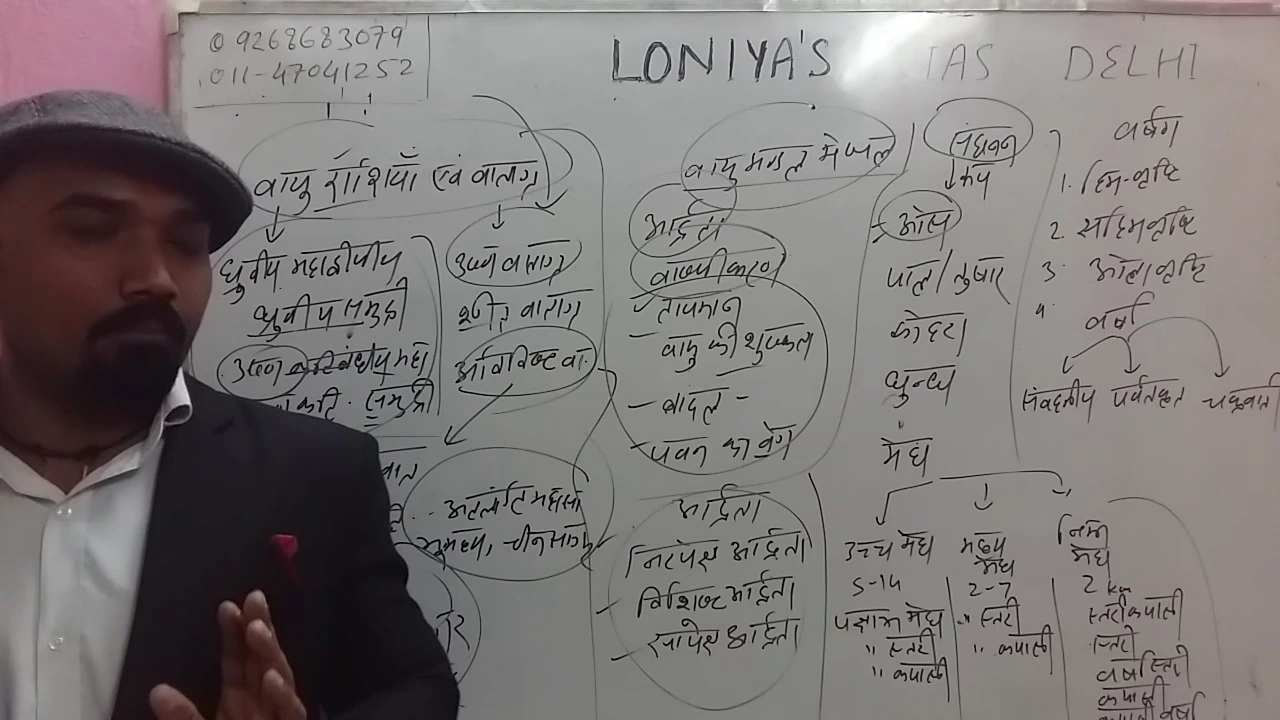 09268683079
011-47041252
LONIYA'S IAS DELHI
वायु राशियाँ एवं वाताग्र
ध्रुवीय महाद्वीपीय
ध्रुवीय समुद्री
उष्ण कटिबंधीय महा
कटि. समुद्री
उष्ण वाताग्र
शीत वाताग्र
अटलांटि महासा
भूमध्य, चीन सागर
वायुमण्डल में जल
आर्द्रता
वाष्पीकरण
- तापमान
- वायु की शुष्कता
- बादल -
- पवन का वेग
आर्द्रता
निरपेक्ष आर्द्रता
विशिष्ट आर्द्रता
सापेक्ष आर्द्रता
संघनन
रूप
ओस
पाला/तुषार
कोहरा
धुन्ध
मेघ
उच्च मेघ
5-14
पक्षाभ मेघ
" स्तरी
" कपासी
मध्य
मेघ
2-7
" स्तरी
" कपासी
निम्न
मेघ
2 km
स्तरी कपासी
स्तरी
वर्षा स्तरी
कपासी
कपासी वर्षा
वर्षण
1. हिम-वृष्टि
2. सहिम वृष्टि
3. ओला वृष्टि
4 वर्षा
संवहनीय पर्वतकृत चक्रवाती